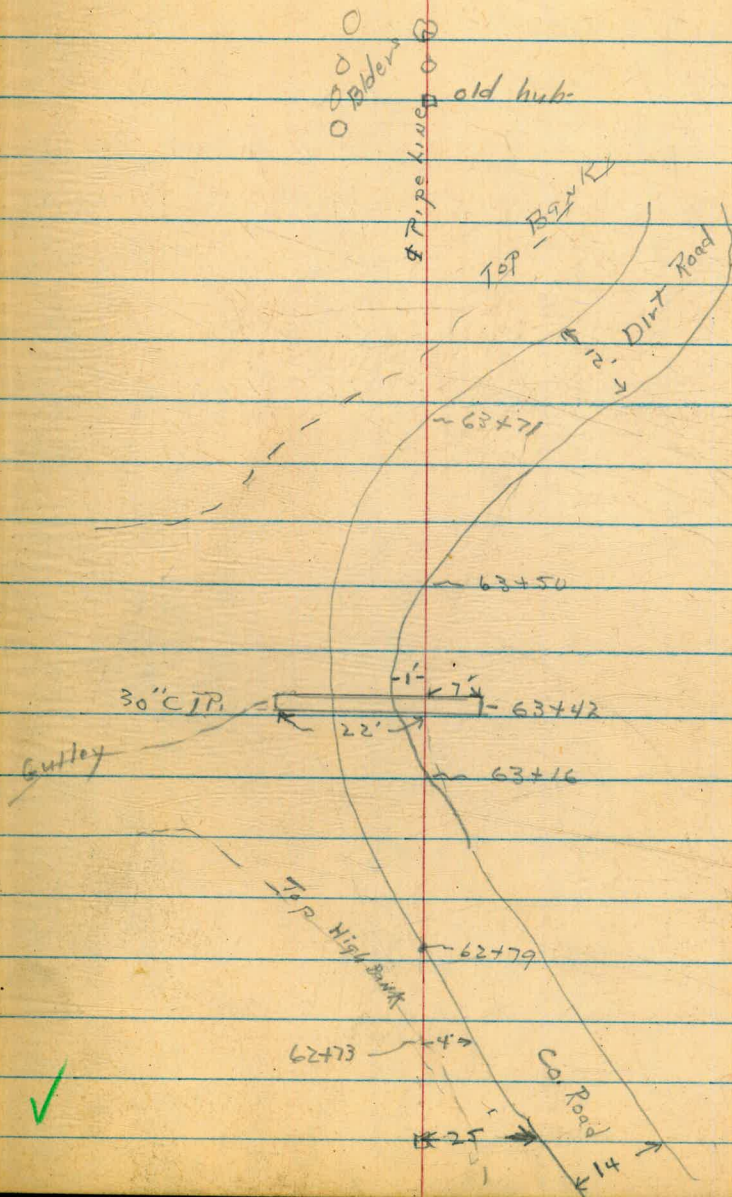 Blders
old hub-
℄ Pipe Line
TOP - Bank
Dirt Road
12'
63+71
63+50
1' 7'
30" C.I.P.
63+42
22'
Gulley
63+16
Top High Bank
62+79
62+73
4'
Co. Road
25'
14